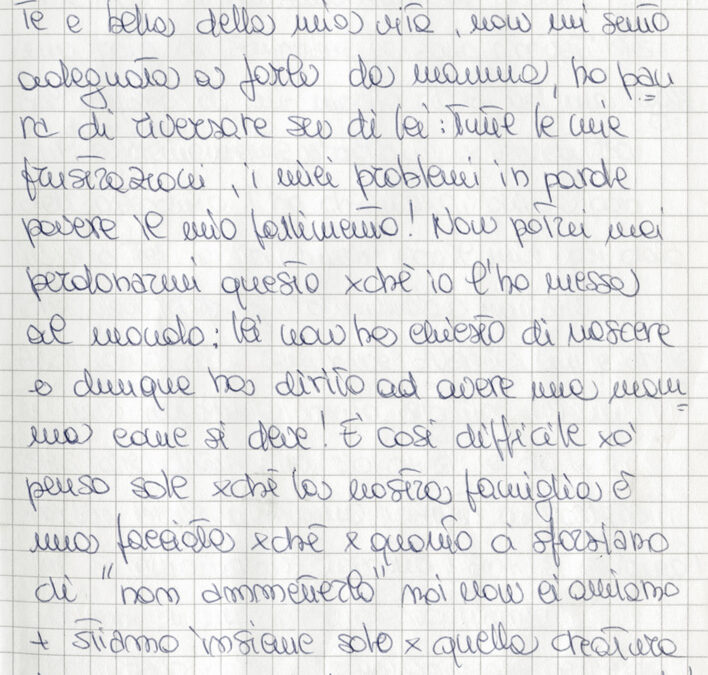 te e bella della mia vita, non mi sento
adeguata a farle da mamma, ho pau
ra di riversare su di lei: tutte le mie
frustrazioni, i miei problemi in parole
povere il mio fallimento! Non potrei mai
perdonarmi questo xchè io l'ho messa
al mondo; lei non ha chiesto di nascere
e dunque ha diritto ad avere una mam
ma come si deve! È così difficile xò
penso solo xchè la nostra famiglia è
una facciata xchè x quanto ci sforziamo
di "non ammetterlo" noi non ci amiamo
+ stiamo insieme solo x quella creatura